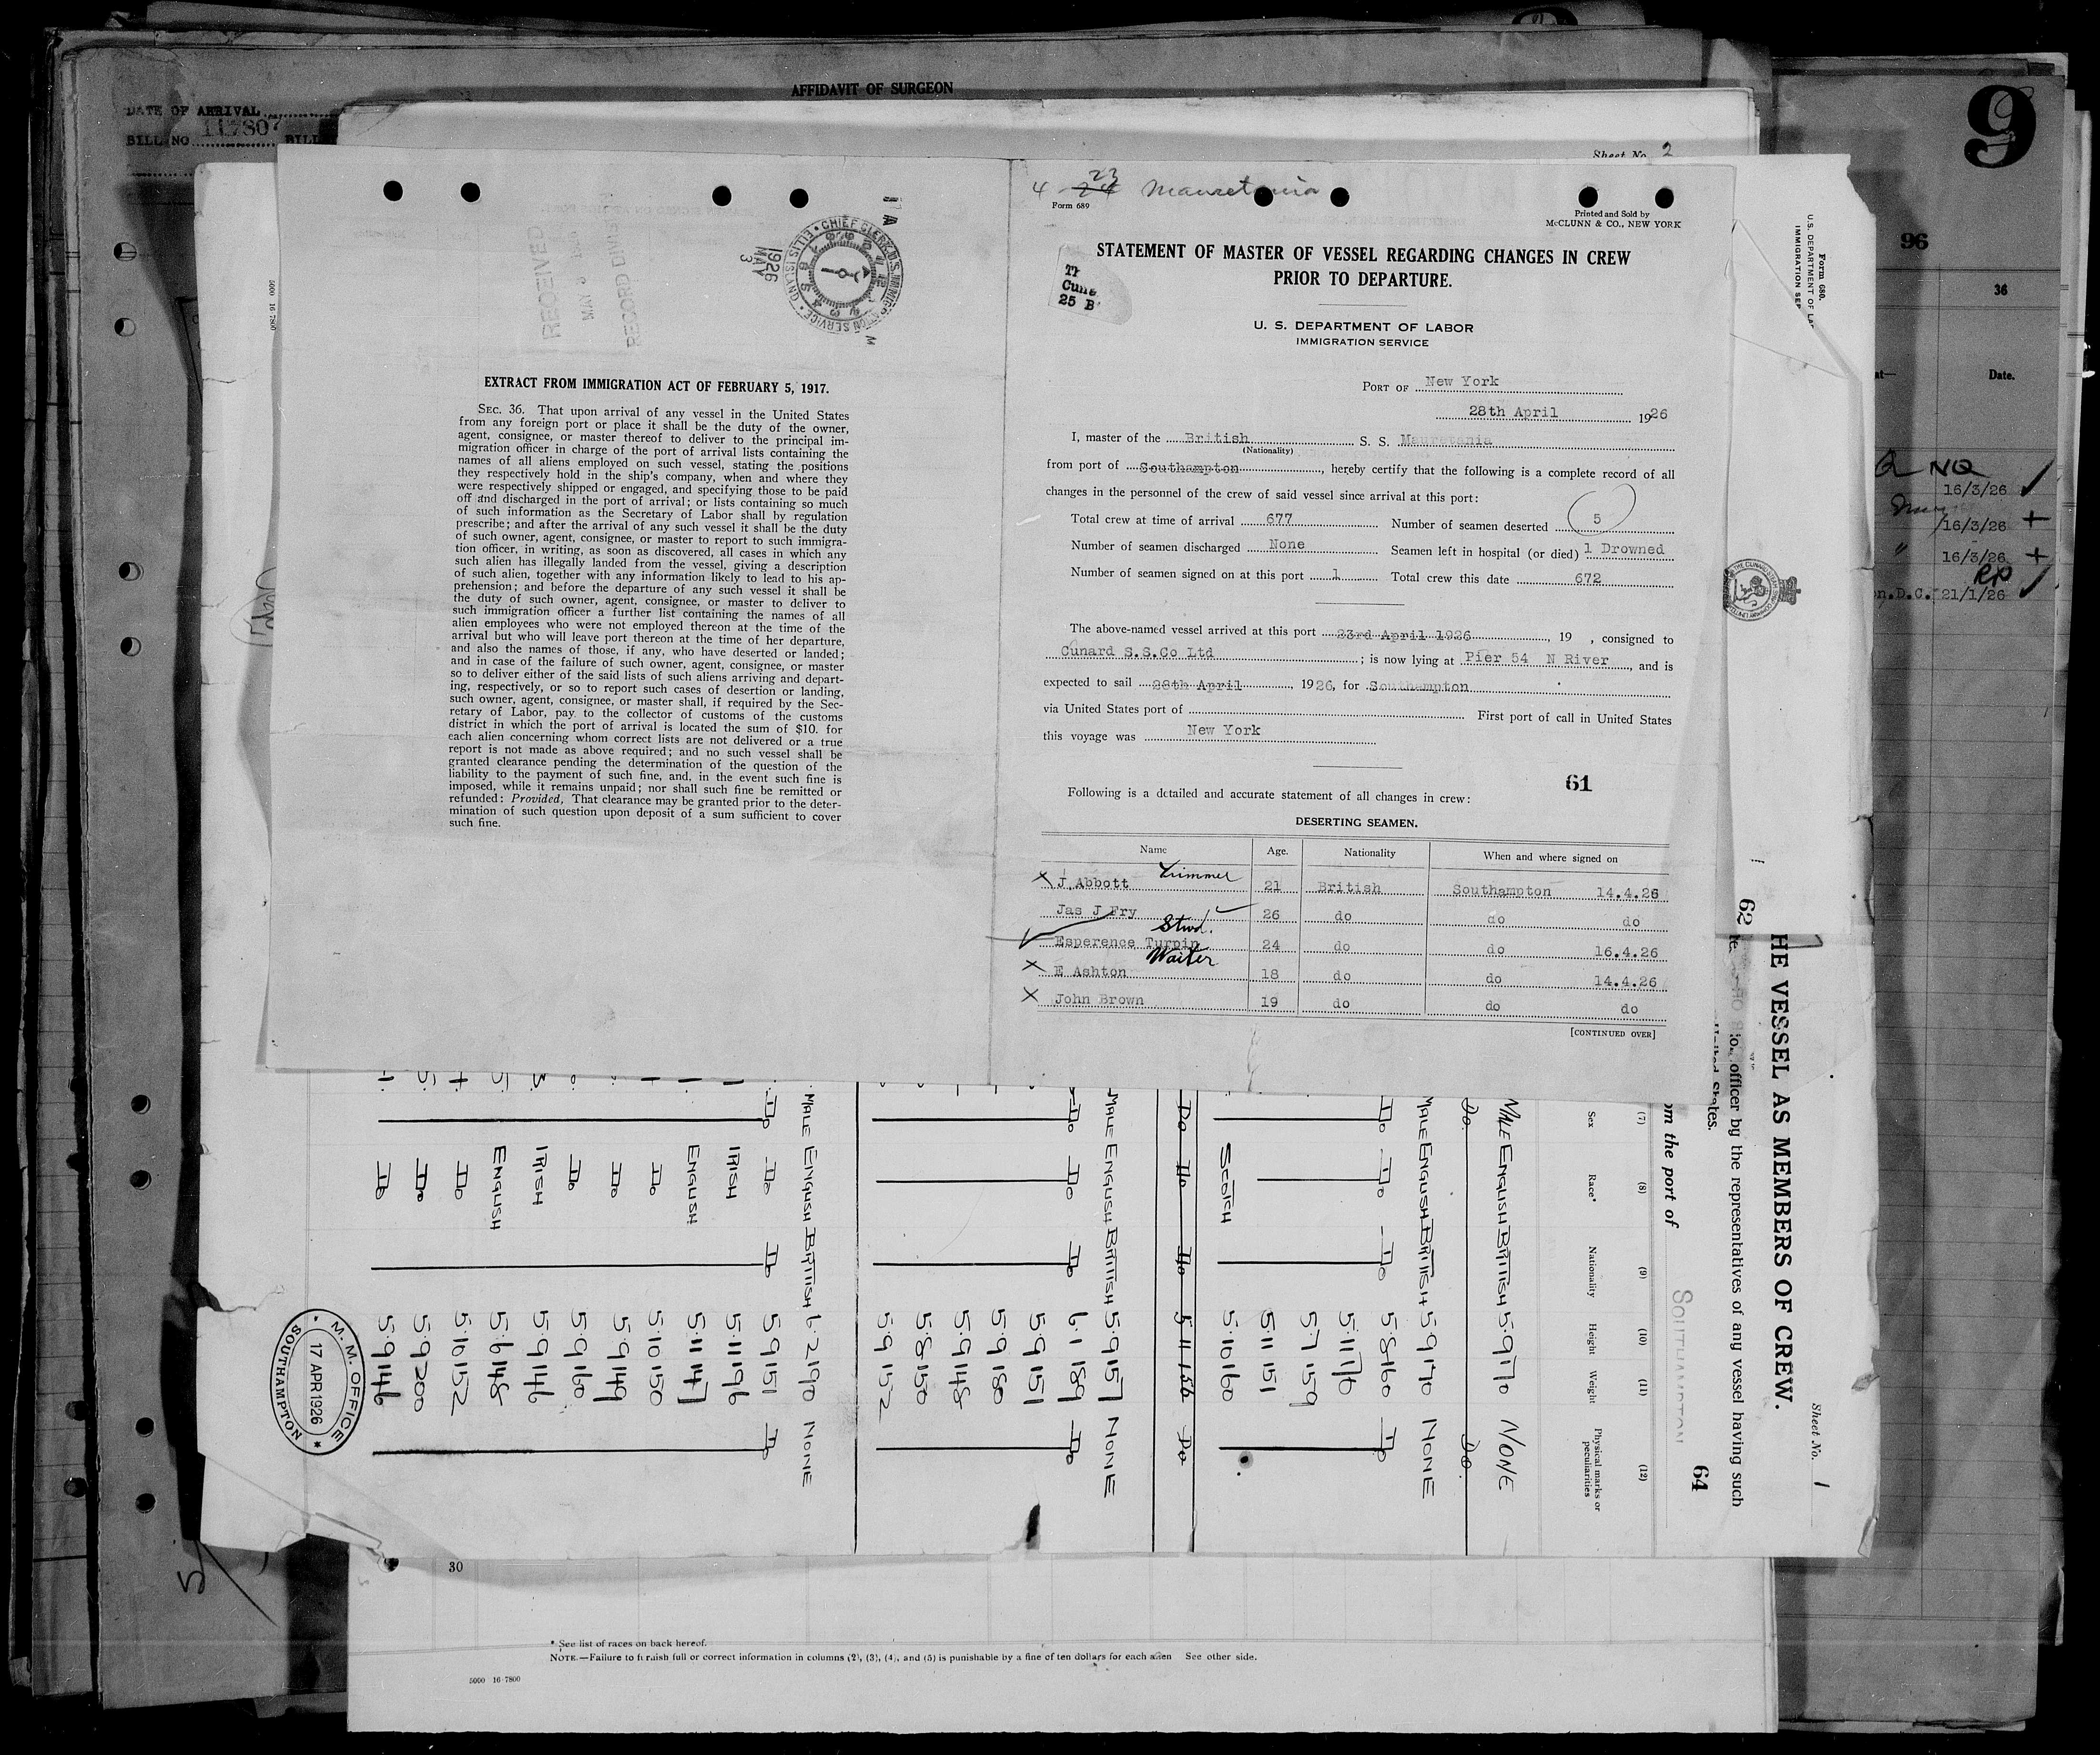 AFFIDAVIT OF SURGEON
DATE OF ARRIVAL
BILL NO 117807 BILL
Sheet No. 2
9
96
36
Date.
NQ
16/3/26
16/3/26
16/3/26
RP
n.D.C. 21/1/26
RECEIVED
MAY
RECORD
1926
MAY
3
CHIEF CLERK U.S. IMMIGRATION SERVICE
ELLIS ISLAND
EXTRACT FROM IMMIGRATION ACT OF FEBRUARY 5, 1917.
SEC. 36. That upon arrival of any vessel in the United States
from any foreign port or place it shall be the duty of the owner,
agent, consignee, or master thereof to deliver to the principal im-
migration officer in charge of the port of arrival lists containing the
names of all aliens employed on such vessel, stating the positions
they respectively hold in the ship's company, when and where they
were respectively shipped or engaged, and specifying those to be paid
off and discharged in the port of arrival; or lists containing so much
of such information as the Secretary of Labor shall by regulation
prescribe; and after the arrival of any such vessel it shall be the duty
of such owner, agent, consignee, or master to report to such immigra-
tion officer, in writing, as soon as discovered, all cases in which any
such alien has illegally landed from the vessel, giving a description
of such alien, together with any information likely to lead to his ap-
prehension; and before the departure of any such vessel it shall be
the duty of such owner, agent, consignee, or master to deliver to
such immigration officer a further list containing the names of all
alien employees who were not employed thereon at the time of the
arrival but who will leave port thereon at the time of her departure,
and also the names of those, if any, who have deserted or landed;
and in case of the failure of such owner, agent, consignee, or master
so to deliver either of the said lists of such aliens arriving and depart-
ing, respectively, or so to report such cases of desertion or landing,
such owner, agent, consignee, or master shall, if required by the Sec-
retary of Labor, pay to the collector of customs of the customs
district in which the port of arrival is located the sum of $10. for
each alien concerning whom correct lists are not delivered or a true
report is not made as above required; and no such vessel shall be
granted clearance pending the determination of the question of the
liability to the payment of such fine, and, in the event such fine is
imposed, while it remains unpaid; nor shall such fine be remitted or
refunded: Provided, That clearance may be granted prior to the deter-
mination of such question upon deposit of a sum sufficient to cover
such fine.
4 24 23 Mauretania
Form 689
Printed and Sold by
McCLUNN & CO., NEW YORK
STATEMENT OF MASTER OF VESSEL REGARDING CHANGES IN CREW
PRIOR TO DEPARTURE.
25 B
U. S. DEPARTMENT OF LABOR
IMMIGRATION SERVICE
PORT OF New York
28th April 1926
I, master of the British S. S. Mauretania
(Nationality)
from port of Southampton, hereby certify that the following is a complete record of all
changes in the personnel of the crew of said vessel since arrival at this port:
Total crew at time of arrival 677 Number of seamen deserted 5
Number of seamen discharged None Seamen left in hospital (or died) 1 Drowned
Number of seamen signed on at this port 1 Total crew this date 672
The above-named vessel arrived at this port 23rd April 1926, 19 , consigned to
Cunard S.S.Co Ltd ; is now lying at Pier 54 N River, and is
expected to sail 28th April, 1926, for Southampton
via United States port of First port of call in United States
this voyage was New York
61
Following is a detailed and accurate statement of all changes in crew:
DESERTING SEAMEN.
Name Age. Nationality When and where signed on
X J Abbott Trimmer 21 British Southampton 14.4.26
Jas J Fry 26 do do do
Esperence Turpin Stwd. 24 do do 16.4.26
X E Ashton Waiter 18 do do 14.4.26
X John Brown 19 do do do
[CONTINUED OVER]
Form 680.
U.S. DEPARTMENT OF LA
IMMIGRATION SER
62
Sheet No. 1
HE VESSEL AS MEMBERS OF CREW.
officer by the representatives of any vessel having such
United States.
om the port of SOUTHAMPTON
64
(7) (8) (9) (10) (11) (12)
Sex Race* Nationality Height Weight Physical marks or peculiarities
MALE ENGLISH BRITISH 5.9 170 NONE
Do. Do.
MALE ENGLISH BRITISH 5.9 170 NONE
Do Do Do 5.8 160 Do
5.11 176
5.7 159
5.11 151
SCOTCH 5.10 160
Do Do Do 5.11 156 Do
MALE ENGLISH BRITISH 5.9 157 NONE
Do Do Do 6.1 189 Do
5.9 151
5.9 180
5.9 148
5.8 150
5.9 152
MALE ENGLISH BRITISH 6.2 190 NONE
Do Do Do 5.9 151 Do
IRISH 5.11 196
ENGLISH 5.11 147
Do 5.10 150
Do 5.9 149
Do 5.9 160
IRISH 5.9 146
ENGLISH 5.6 148
Do 5.10 152
Do 5.9 200
Do 5.9 146
M. M. OFFICE
17 APR 1926
SOUTHAMPTON
5000 16-7800
30
* See list of races on back hereof.
NOTE.—Failure to furnish full or correct information in columns (2), (3), (4), and (5) is punishable by a fine of ten dollars for each alien See other side.
5000 16-7800